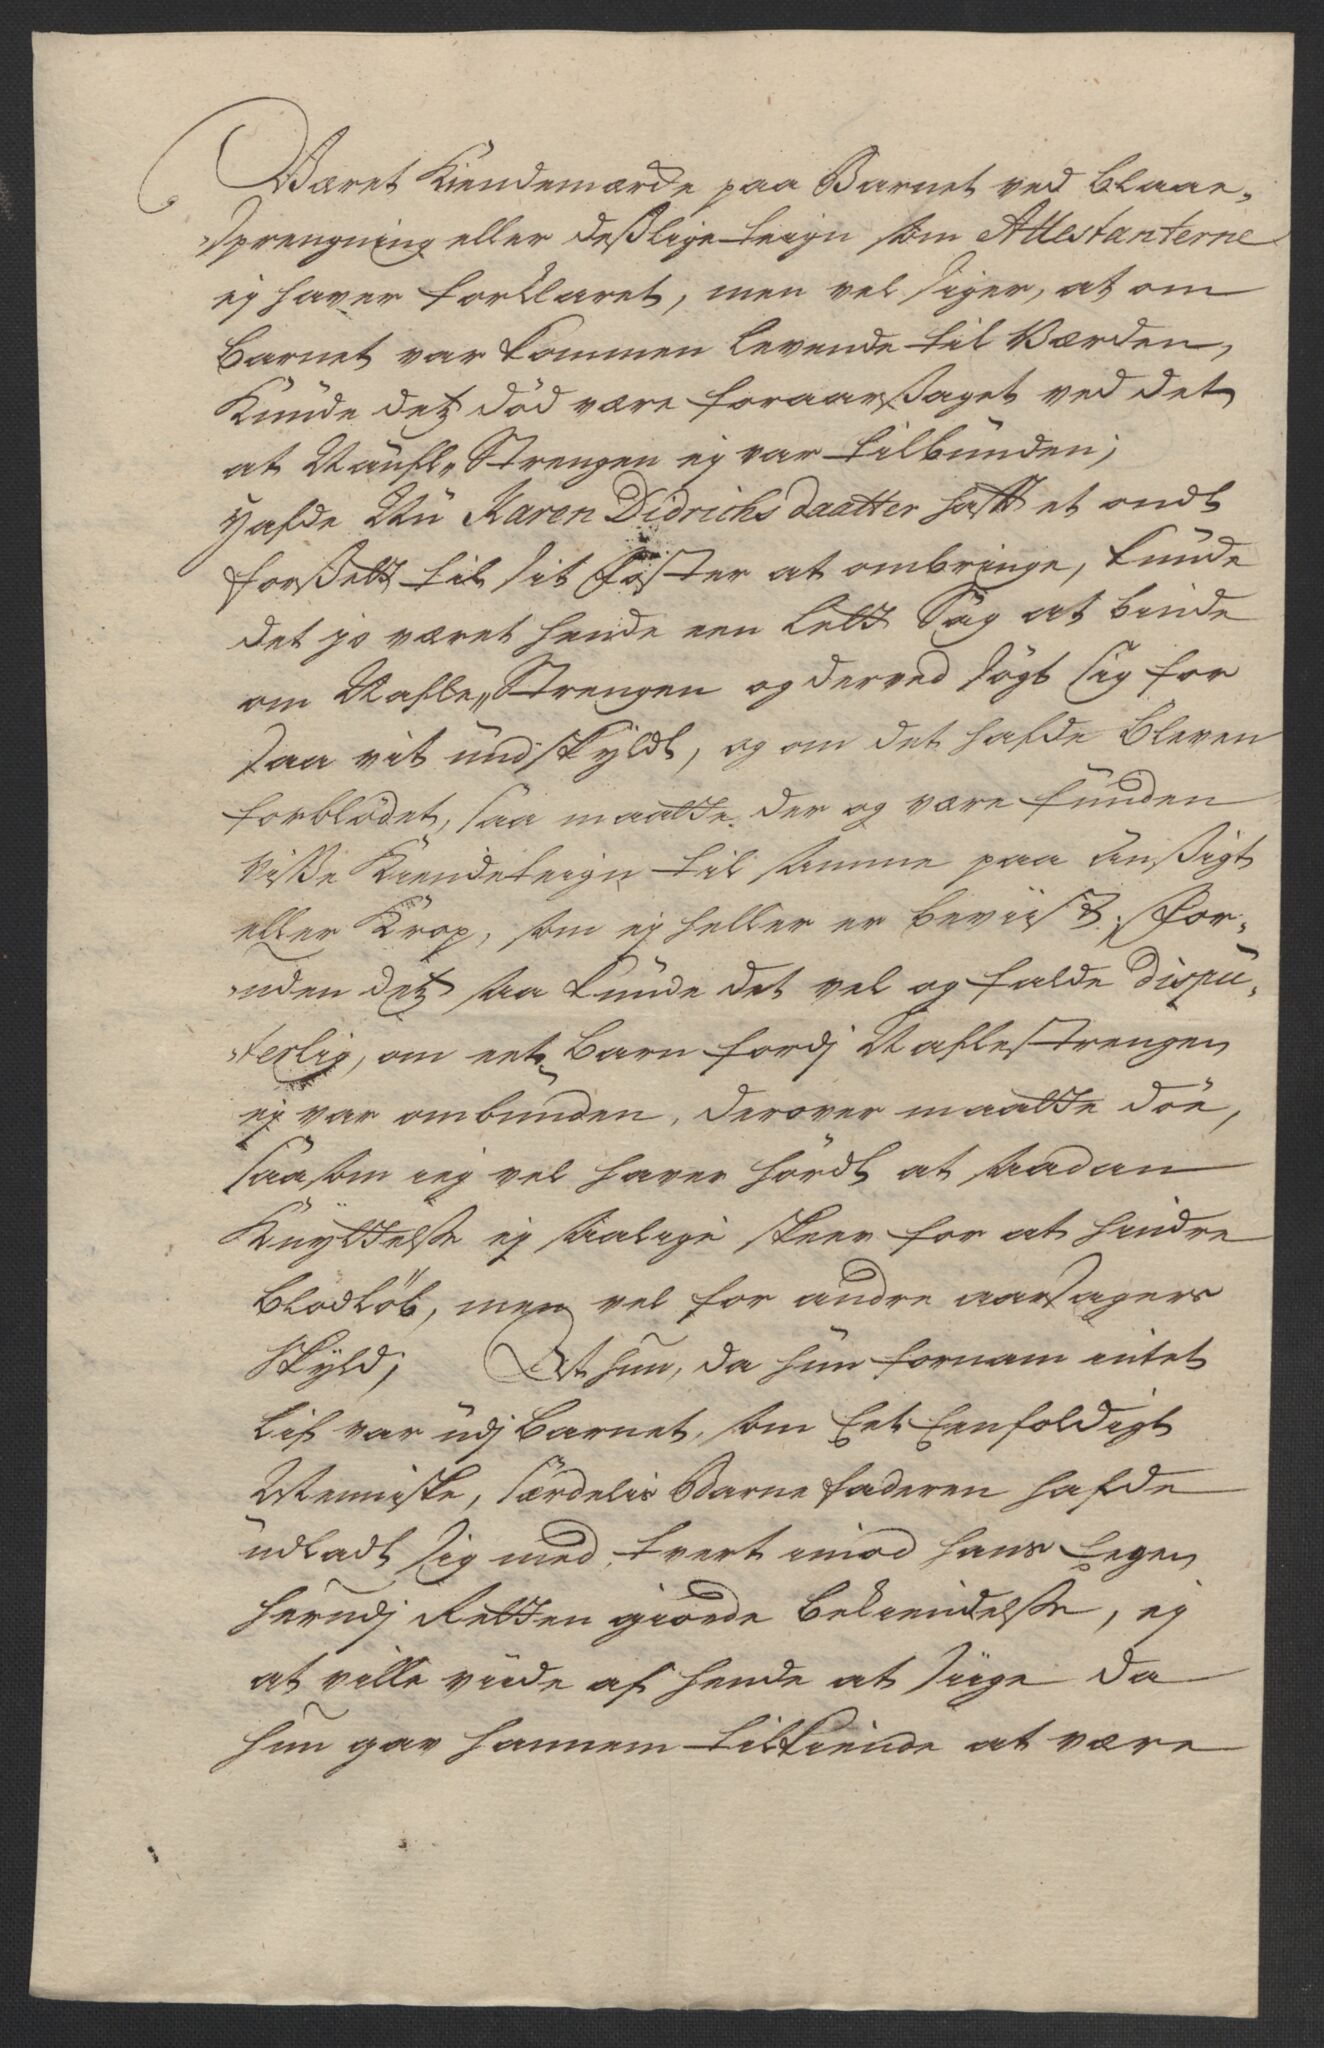 Været Kiendemærde paa Barnet ved blaae-
sprengning eller deßlige teign som Attestanterne
ej haver forklaret, men vel siger, at om
barnet var kommen levende til Værden,
Kunde detz død være foraarßaget ved det
at Naufl„Strengen ej var tilbunden;
Hafde Nu Karen Didrichsdaatter hafft et ondt
forßett til sit Foster at ombringe, kunde
det jo været hende een lett Sag at binde
om Nafle„Strengen og derved søgt sig for
saa vit undskyldt, og om det hafde bleven
forblødet, saa maatte der og være funden
viße Kiendeteign til samme paa Ansigt
eller Krop, som ej heller er beviist; For-
uden detz saa kunde det vel og falde dispu-
terlig, om eet Barn fordj Naflestrengen
ej var ombunden, derover maatte döe,
saasom ieg vel haver hördt at saadan
Knyttelse ej saalige skeer for at hindre
blodlöb, men vel for andre aarsagers
skyld; At hun, da hun fornam intet
lif var udj barnet, som Eet Eenfoldigt
Menniske, særdelis Barnefaderen hafde
udladt sig med, tvert imod hans Eegen
herudj Retten giorde bekiendelse, ej
at ville viide af hende at siige da
hun gav hannem tilkiende at være